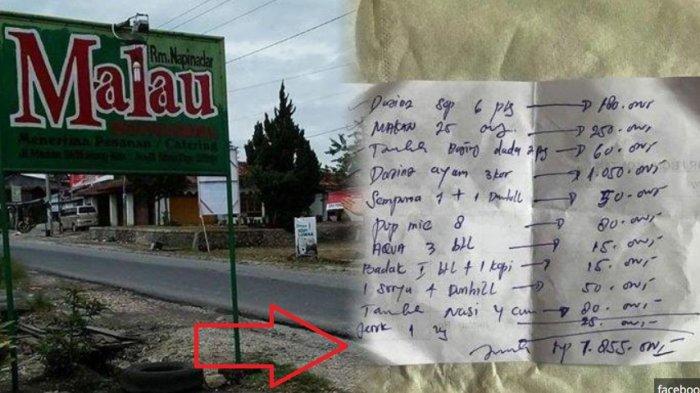 Rm. Napinadar
Malau
Menerima Pesanan / Catering
6 180.000
MAKAN 25 org 250.000
Tamba Daging dada 60.000
Daging ayam 3 kor 1.050.000
Sempurna 1 + 1 Dunhill 50.000
pop mie 8 80.000
AQUA 3 btl 15.000
Badak 1 btl + 1 kopi 15.000
1 Surya + Dunhill 50.000
Tamba Nasi
Jeruk 1 25.000
Rp 1.855.000
faceboo